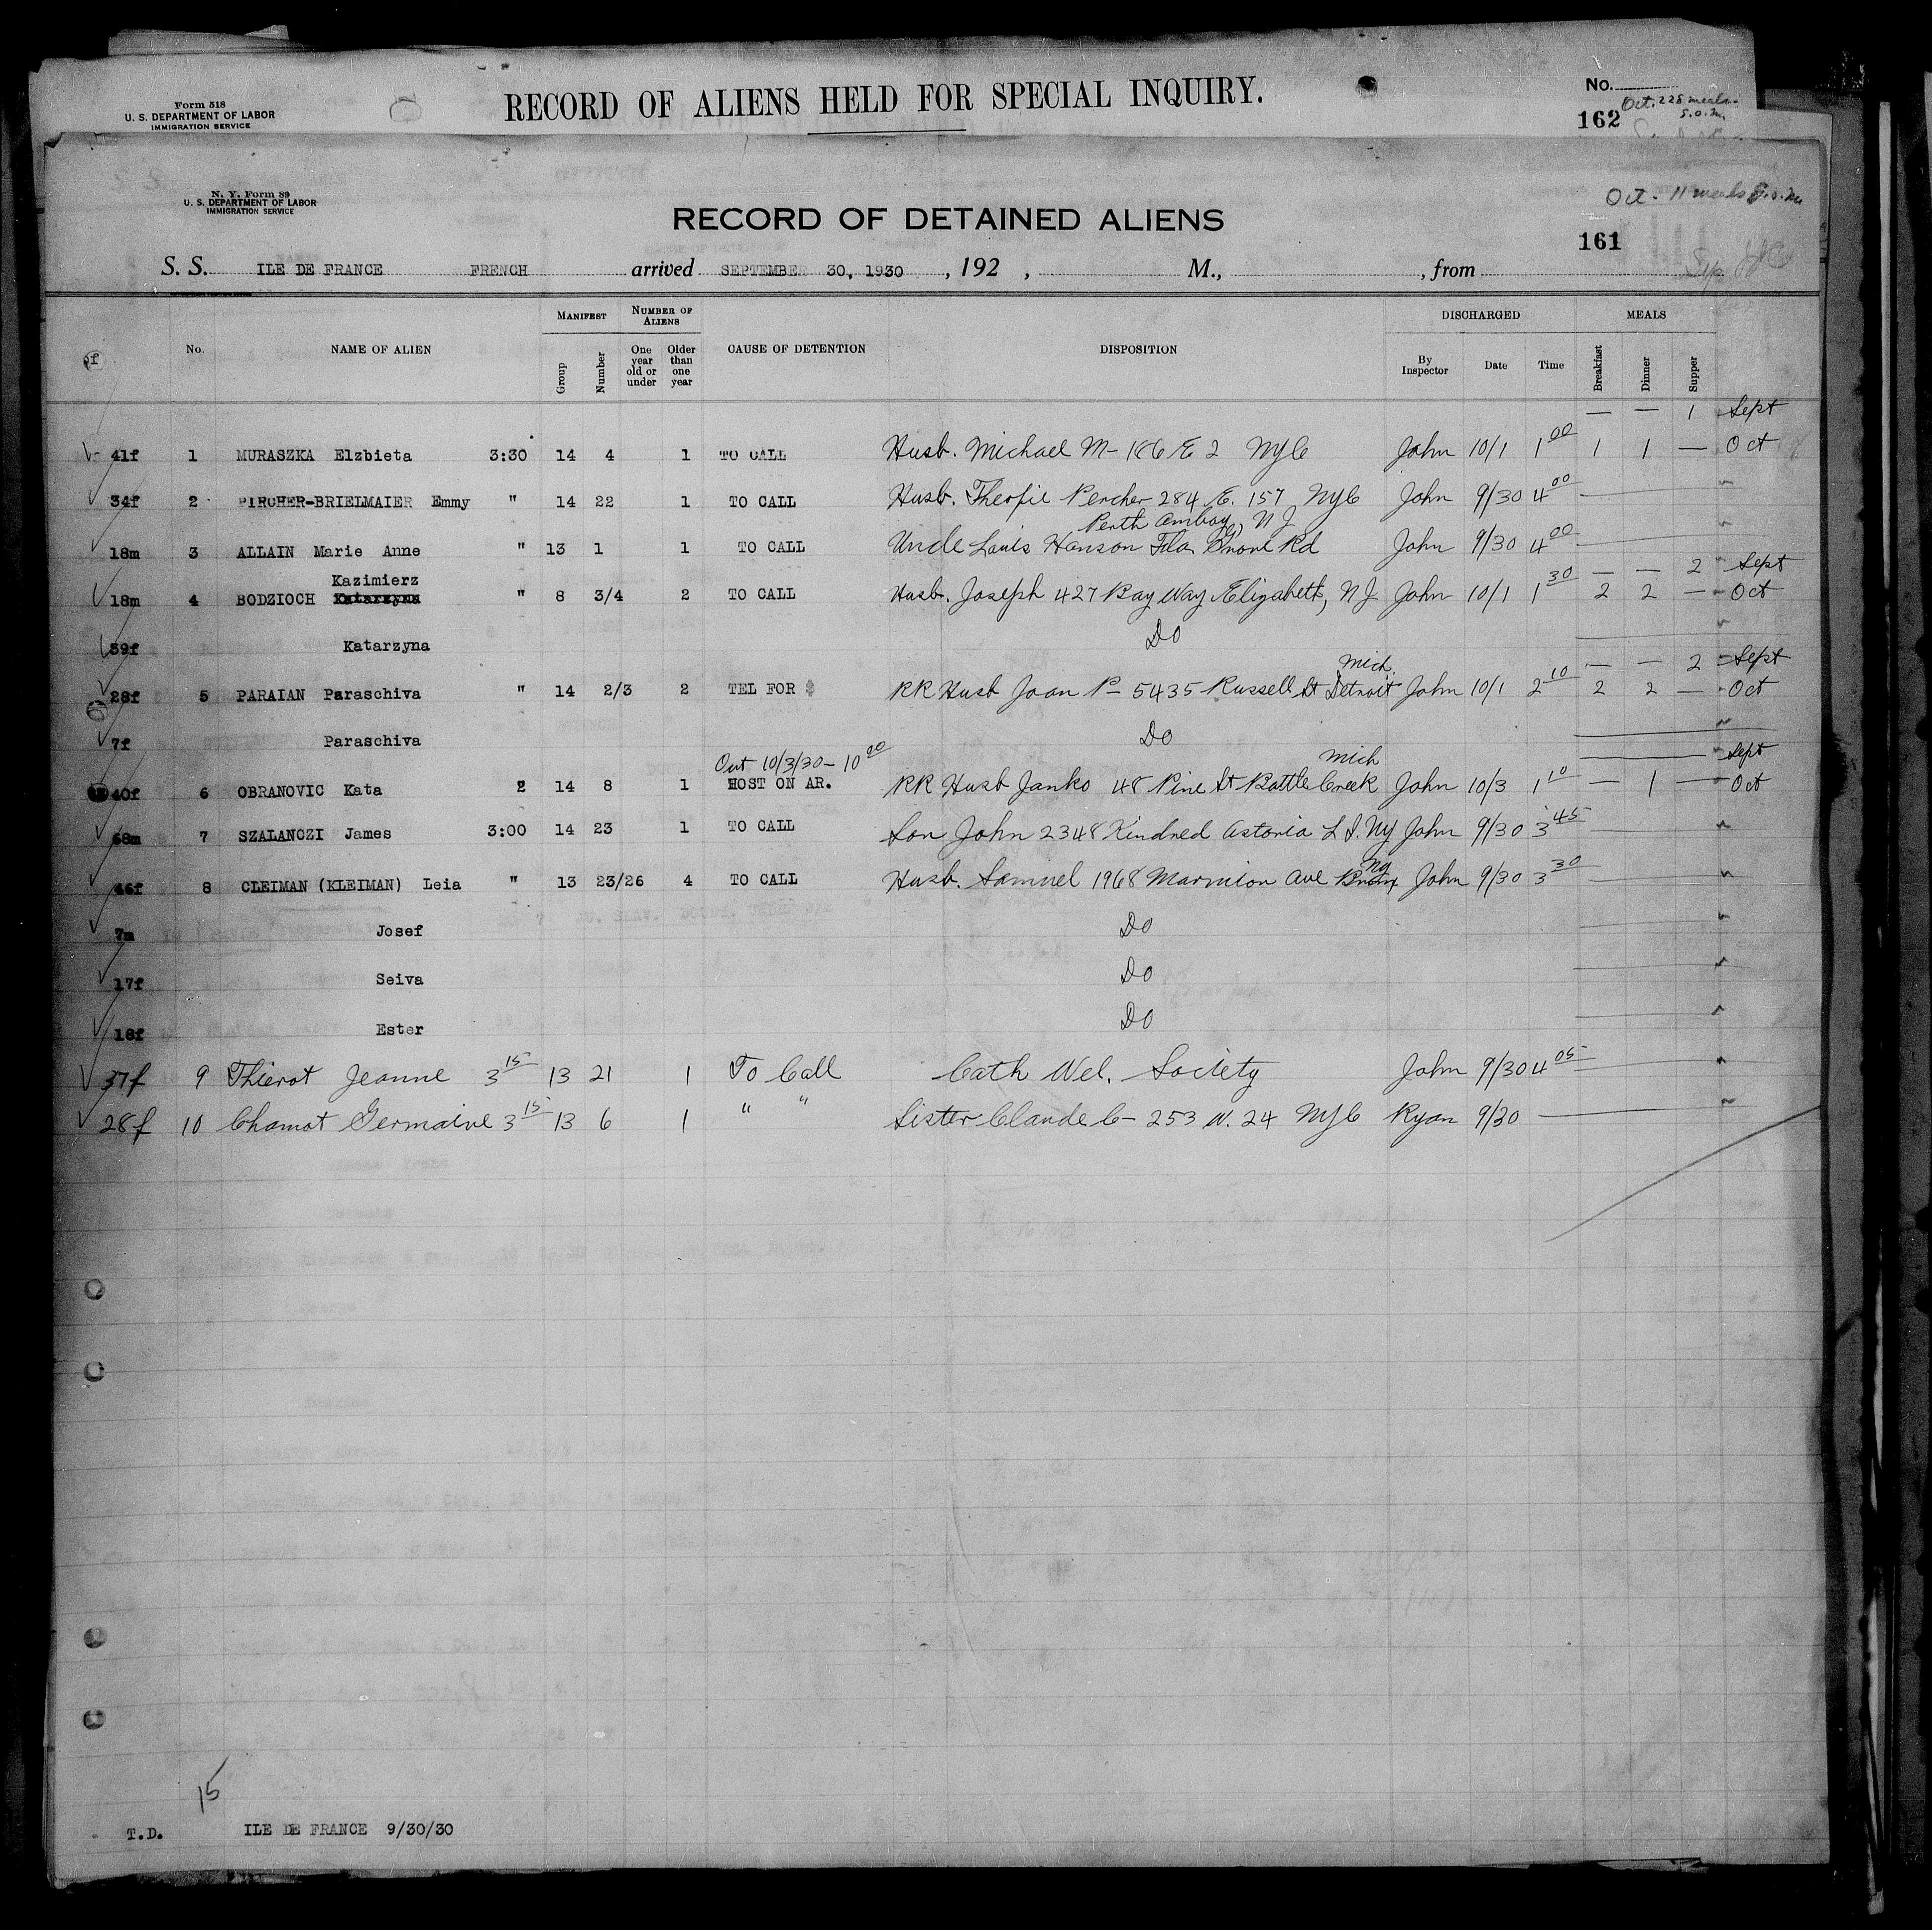 Form 518
U. S. DEPARTMENT OF LABOR
IMMIGRATION SERVICE
RECORD OF ALIENS HELD FOR SPECIAL INQUIRY.
No.
162
Oct. 228 meals
N. Y. Form 89
U. S. DEPARTMENT OF LABOR
IMMIGRATION SERVICE
RECORD OF DETAINED ALIENS
Oct. 11 meals
161
S. S. ILE DE FRANCE FRENCH arrived SEPTEMBER 30, 1930 , 192 , M., , from
No. NAME OF ALIEN MANIFEST NUMBER OF ALIENS CAUSE OF DETENTION DISPOSITION DISCHARGED MEALS
Group Number One year old or under Older than one year By Inspector Date Time Breakfast Dinner Supper
— — 1 Sept
41f 1 MURASZKA Elzbieta 3:30 14 4 1 TO CALL Husb. Michael M- 186 E 2 NYC John 10/1 1 00 1 1 — Oct
34f 2 PIRCHER-BRIELMAIER Emmy " 14 22 1 TO CALL Husb. Theofic Percher 284 E. 157 NYC John 9/30 4 00
Perth Amboy, NJ
18m 3 ALLAIN Marie Anne " 13 1 1 TO CALL Uncle Louis Hanson Rd John 9/30 4 00
Kazimierz — — 2 Sept
18m 4 BODZIOCH Katarzyna " 8 3/4 2 TO CALL Husb. Joseph 427 Bay Way Elizabeth, NJ John 10/1 1 30 2 2 — Oct
39f Katarzyna Do
Mich. — — 2 Sept
28f 5 PARAIAN Paraschiva " 14 2/3 2 TEL FOR $ RR Husb Joan P- 5435 Russell St Detroit John 10/1 2 10 2 2 — Oct
7f Paraschiva Do
Out 10/3/30 - 10 00 Mich Sept
40f 6 OBRANOVIC Kata 2 14 8 1 HOST ON AR. RR Husb Janko 48 Pine St Battle Creek John 10/3 1 10 — 1 — Oct
68m 7 SZALANCZI James 3:00 14 23 1 TO CALL Son John 2348 Kindred Astoria L I. NY John 9/30 3 45
46f 8 CLEIMAN (KLEIMAN) Leia " 13 23/26 4 TO CALL Husb. Samuel 1968 Marmion Ave Bronx NY John 9/30 3 30
7m Josef Do
17f Seiva Do
18f Ester Do
37f 9 Thierot Jeanne 3 15 13 21 1 To Call Cath Wel. Society John 9/30 4 05
28f 10 Chamot Germaine 3 15 13 6 1 " " Sister Claude C- 253 W. 24 NYC Ryan 9/30
15
T.D. ILE DE FRANCE 9/30/30